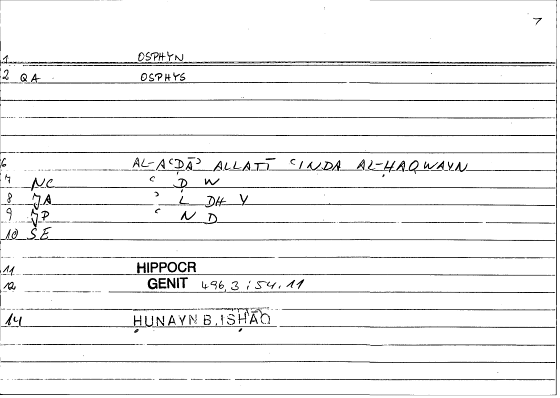 7
1 OSPHYN
2 QA OSPHYS
6 AL-AʿḌĀʾ ALLATĪ ʿINDA AL-ḤAQWAYN
7 NC ʿ Ḍ W
8 JA ʾ L DH Y
9 JP ʿ N D
10 SE
11 HIPPOCR
12 GENIT 496,3;54.11
14 ḤUNAYN B. ISḤĀQ